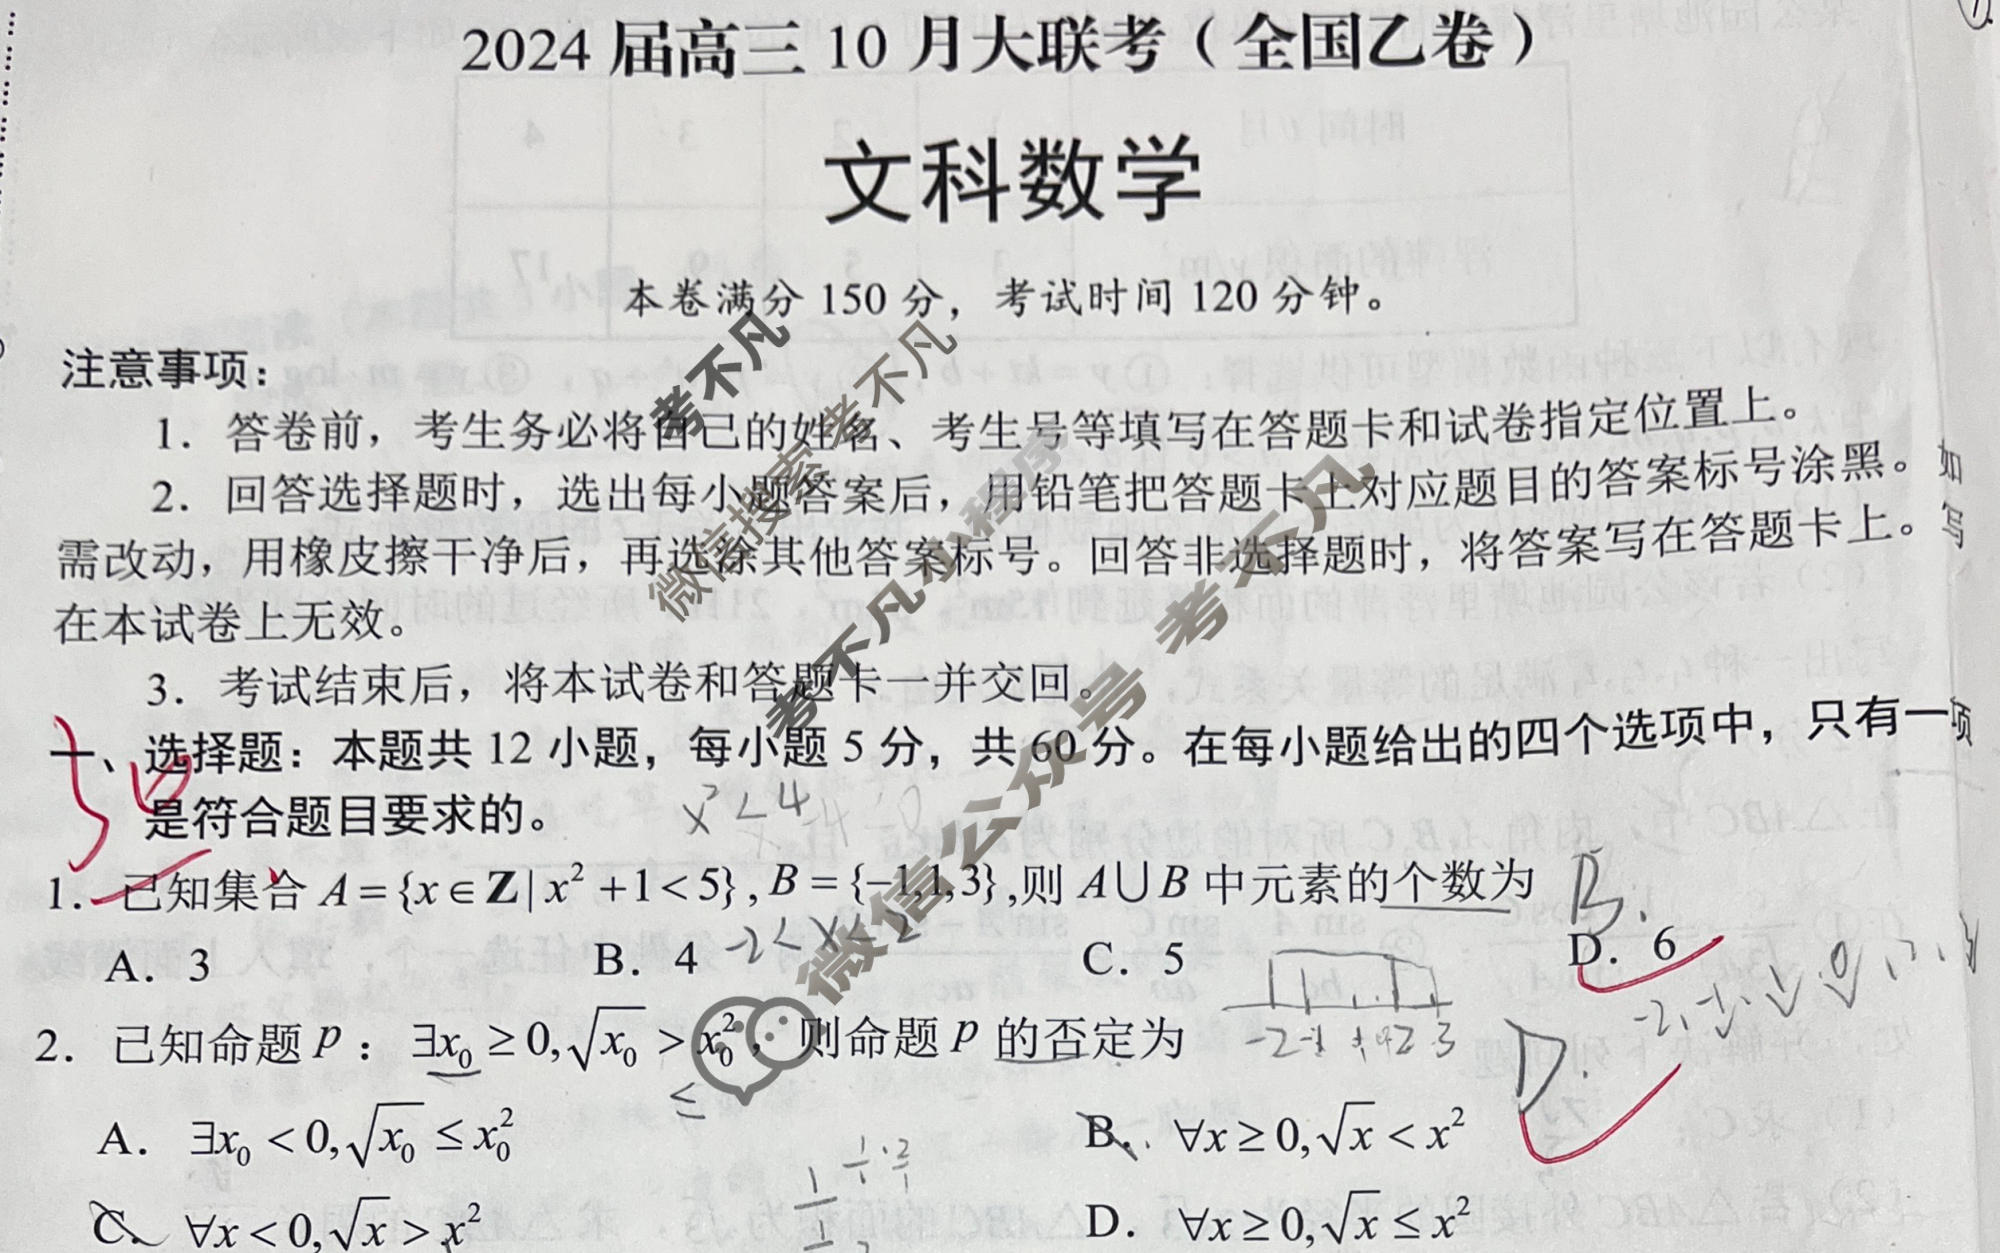 2024 届高三 10 月大联考（全国乙卷）
文科数学
本卷满分 150 分，考试时间 120 分钟。
注意事项：
1．答卷前，考生务必将自己的姓名、考生号等填写在答题卡和试卷指定位置上。
2．回答选择题时，选出每小题答案后，用铅笔把答题卡上对应题目的答案标号涂黑。如
需改动，用橡皮擦干净后，再选涂其他答案标号。回答非选择题时，将答案写在答题卡上。写
在本试卷上无效。
3．考试结束后，将本试卷和答题卡一并交回。
一、选择题：本题共 12 小题，每小题 5 分，共 60 分。在每小题给出的四个选项中，只有一项
是符合题目要求的。
x² < 4
1．已知集合 A = {x ∈ Z | x² + 1 < 5}, B = {−1,1,3}, 则 A ∪ B 中元素的个数为
B.
A．3 B．4 C．5 D．6
-2 < x < 2
2．已知命题 p：∃x₀ ≥ 0, √x₀ > x₀²，则命题 p 的否定为
D.
≤
A．∃x₀ < 0, √x₀ ≤ x₀² B．∀x ≥ 0, √x < x²
C．∀x < 0, √x > x² D．∀x ≥ 0, √x ≤ x²
考不凡
考不凡
微信搜索
考不凡小程序
微信公众号 考不凡